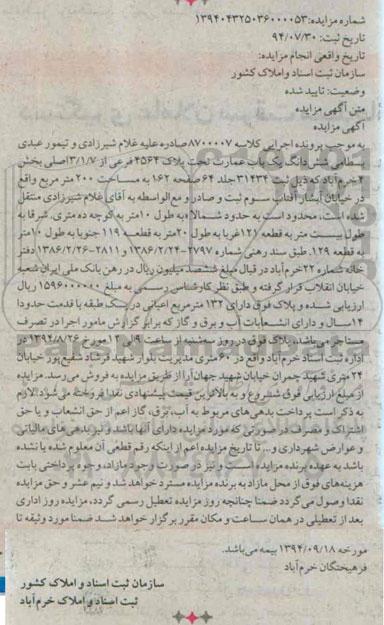 شماره مزایده:۱۳۹۴۰۴۳۲۵۰۳۶۰۰۰۰۵۳
تاریخ ثبت: ۹۴/۰۷/۳۰
تاریخ واقعی انجام مزایده:
سازمان ثبت اسناد و املاک کشور
وضعیت: تایید شده
متن آگهی مزایده
آگهی مزایده
به موجب پرونده اجرایی کلاسه ۸۷۰۰۰۰۷ صادره علیه غلام شیرزادی و تیمور عبدی
بسطامی شش دانگ یک باب عمارت تحت پلاک ۴۵۶۴ فرعی از ۳/۱/۷ اصلی بخش
۲خرم آباد که ذیل ثبت ۳۱۴۳۴ جلد ۶۴ صفحه ۱۶۲ به مساحت ۲۰۰ متر مربع واقع
در خیابان آبشار آفتاب سوم ثبت و صادر و مع الواسطه به آقای غلام شیرزادی منتقل
شده است. محدود است به حدود شمالا به طول ۱۰ متر به کوچه ده متری، شرقا به
طول بیست متر به قطعه ۱۲۱ غربا به طول ۲۰ متر به قطعه ۱۱۹ جنوبا به طول ۱۰ متر
به قطعه ۱۲۹. طبق سند رهنی شماره ۲۷۹۷-۱۳۸۶/۲/۲۴ و ۲۸۱۱-۱۳۸۶/۲/۲۶ دفتر
خانه شماره ۲۲ خرم آباد در قبال مبلغ ششصد میلیون ریال در رهن بانک ملی ایران شعبه
خیابان انقلاب قرار گرفته و طبق نظر کارشناس رسمی به مبلغ ۱۵۹۶۰۰۰۰۰۰ ریال
ارزیابی شده و پلاک فوق دارای ۱۳۲ مترمربع اعیانی در یک طبقه با قدمت حدودا
۱۴ سال و دارای انشعابات آب و برق و گاز که برابر گزارش مامور اجرا در تصرف
مستاجر می باشد. پلاک فوق در روز سه شنبه از ساعت ۹ الی ۱۲ مورخ ۱۳۹۴/۸/۲۶ در
اداره ثبت اسناد خرم آباد واقع در ۶۰ متری مدیریت بلوار شهید فرشاد شفیع پور خیابان
۲۴ متری شهید چمران خیابان شهید جهان آرا از طریق مزایده به فروش می رسد. مزایده
از مبلغ ارزیابی فوق شروع و به بالاترین قیمت پیشنهادی نقدا فروخته می شود. لازم
به ذکر است پرداخت بدهی های مربوط به آب، برق، گاز اعم از حق انشعاب و یا حق
اشتراک و مصرف در صورتی که مورد مزایده دارای آنها باشد و نیز بدهی های مالیاتی
و عوارض شهرداری و... تا تاریخ مزایده اعم از اینکه رقم قطعی آن معلوم شده یا نشده
باشد به عهده برنده مزایده است و نیز در صورت وجود مازاد، وجوه پرداختی بابت
هزینه های فوق از محل مازاد به برنده مزایده مسترد خواهد شد و نیم عشر و حق مزایده
نقدا وصول می گردد ضمنا چنانچه روز مزایده تعطیل رسمی گردد، مزایده روز اداری
بعد از تعطیلی در همان ساعت و مکان مقرر برگزار خواهد شد ضمنا مورد وثیقه تا
مورخه ۱۳۹۴/۰۹/۱۸ بیمه می باشد.
فرهیختگان خرم آباد
سازمان ثبت اسناد و املاک کشور
ثبت اسناد و املاک خرم آباد